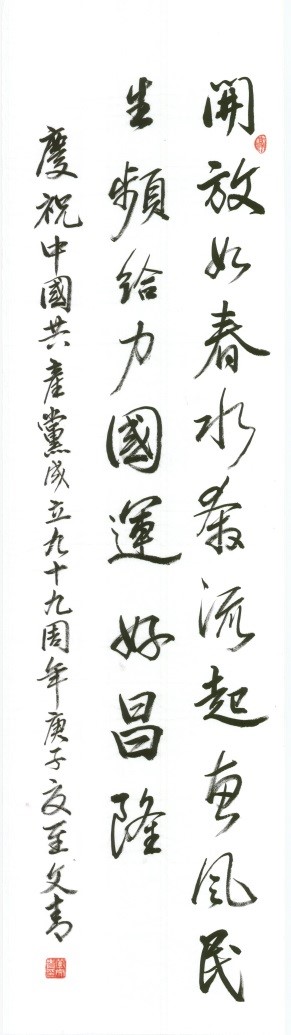 開放如春水流起惠風民
生頻給力國運好昌隆
慶祝中國共產黨成立九十九周年庚子夏至文青